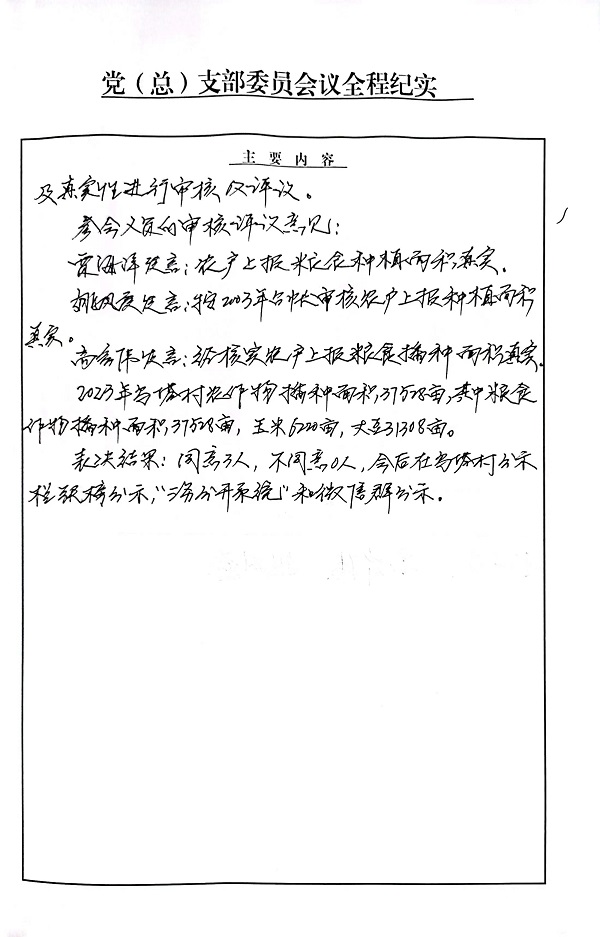 党（总）支部委员会议全程纪实
主要内容
及真实性进行审核及评议。
参会人员的审核评议意见：
栗海洋发言：农户上报粮食种植面积真实。
发言：按2023年台账审核农户上报种植面积
真实。
高彦伟发言：经核实农户上报粮食播种面积真实。
2023年乌塔村农作物播种面积37528亩，其中粮食
作物播种面积37528亩，玉米6220亩，大豆31308亩。
表决结果：同意3人，不同意0人，会后在乌塔村公示
栏张榜公示，“三务公开系统”和微信群公示。